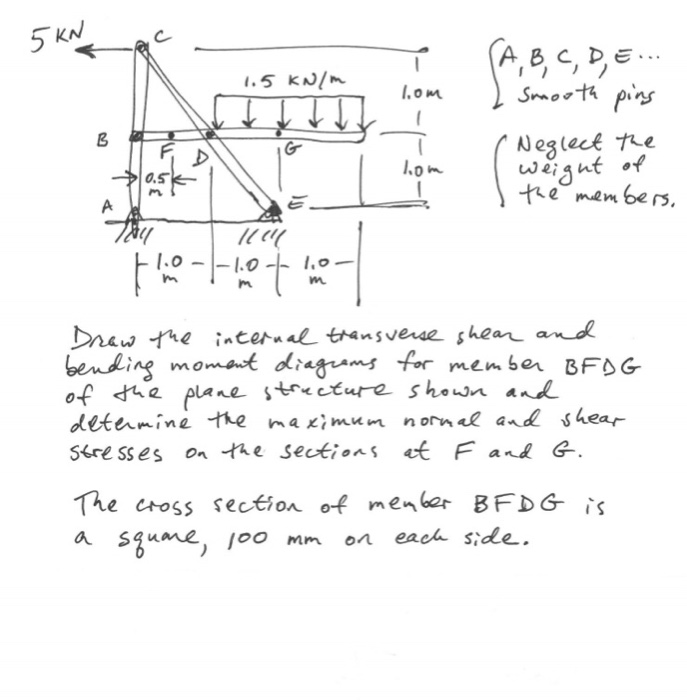 5 KN
C
1.5 KN/m
1.0m
B
F
D
G
0.5
m
1.0m
A
E
1.0
m
1.0
m
1.0
m
A, B, C, D, E ...
Smooth pins
Neglect the
weight of
the members.
Draw the internal transverse shear and
bending moment diagrams for member BFDG
of the plane structure shown and
determine the maximum normal and shear
stresses on the sections at F and G.
The cross section of member BFDG is
a square, 100 mm on each side.